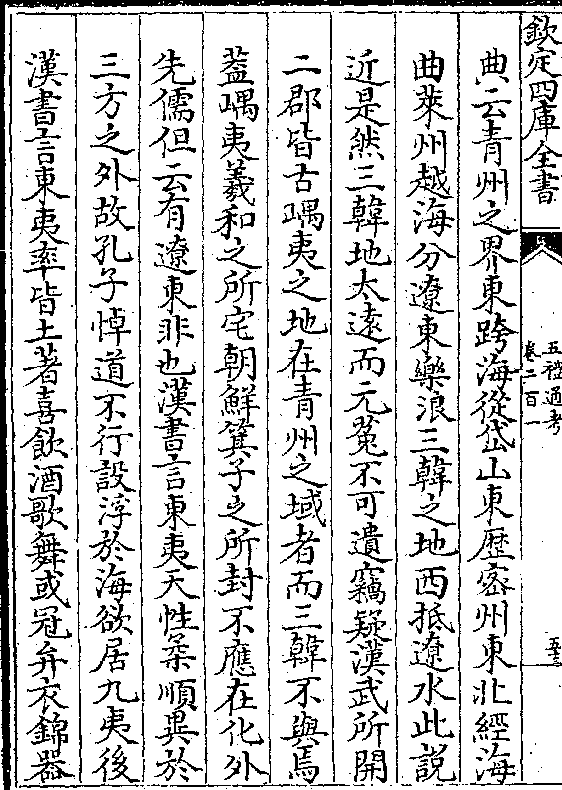 欽定四庫全書
五禮通考
卷二百一
典云青州之界東跨海從岱山東歷密州東北經海
曲萊州越海分遼東樂浪三韓之地西抵遼水此説
近是然三韓地太遠而元菟不可遺竊疑漢武所開
二郡皆古嵎夷之地在青州之域者而三韓不與焉
葢嵎夷羲和之所宅朝鮮箕子之所封不應在化外
先儒但云有遼東非也漢書言東夷天性柔順異於
三方之外故孔子悼道不行設浮於海欲居九夷後
漢書言東夷率皆土著喜飲酒歌舞或冠弁衣錦器